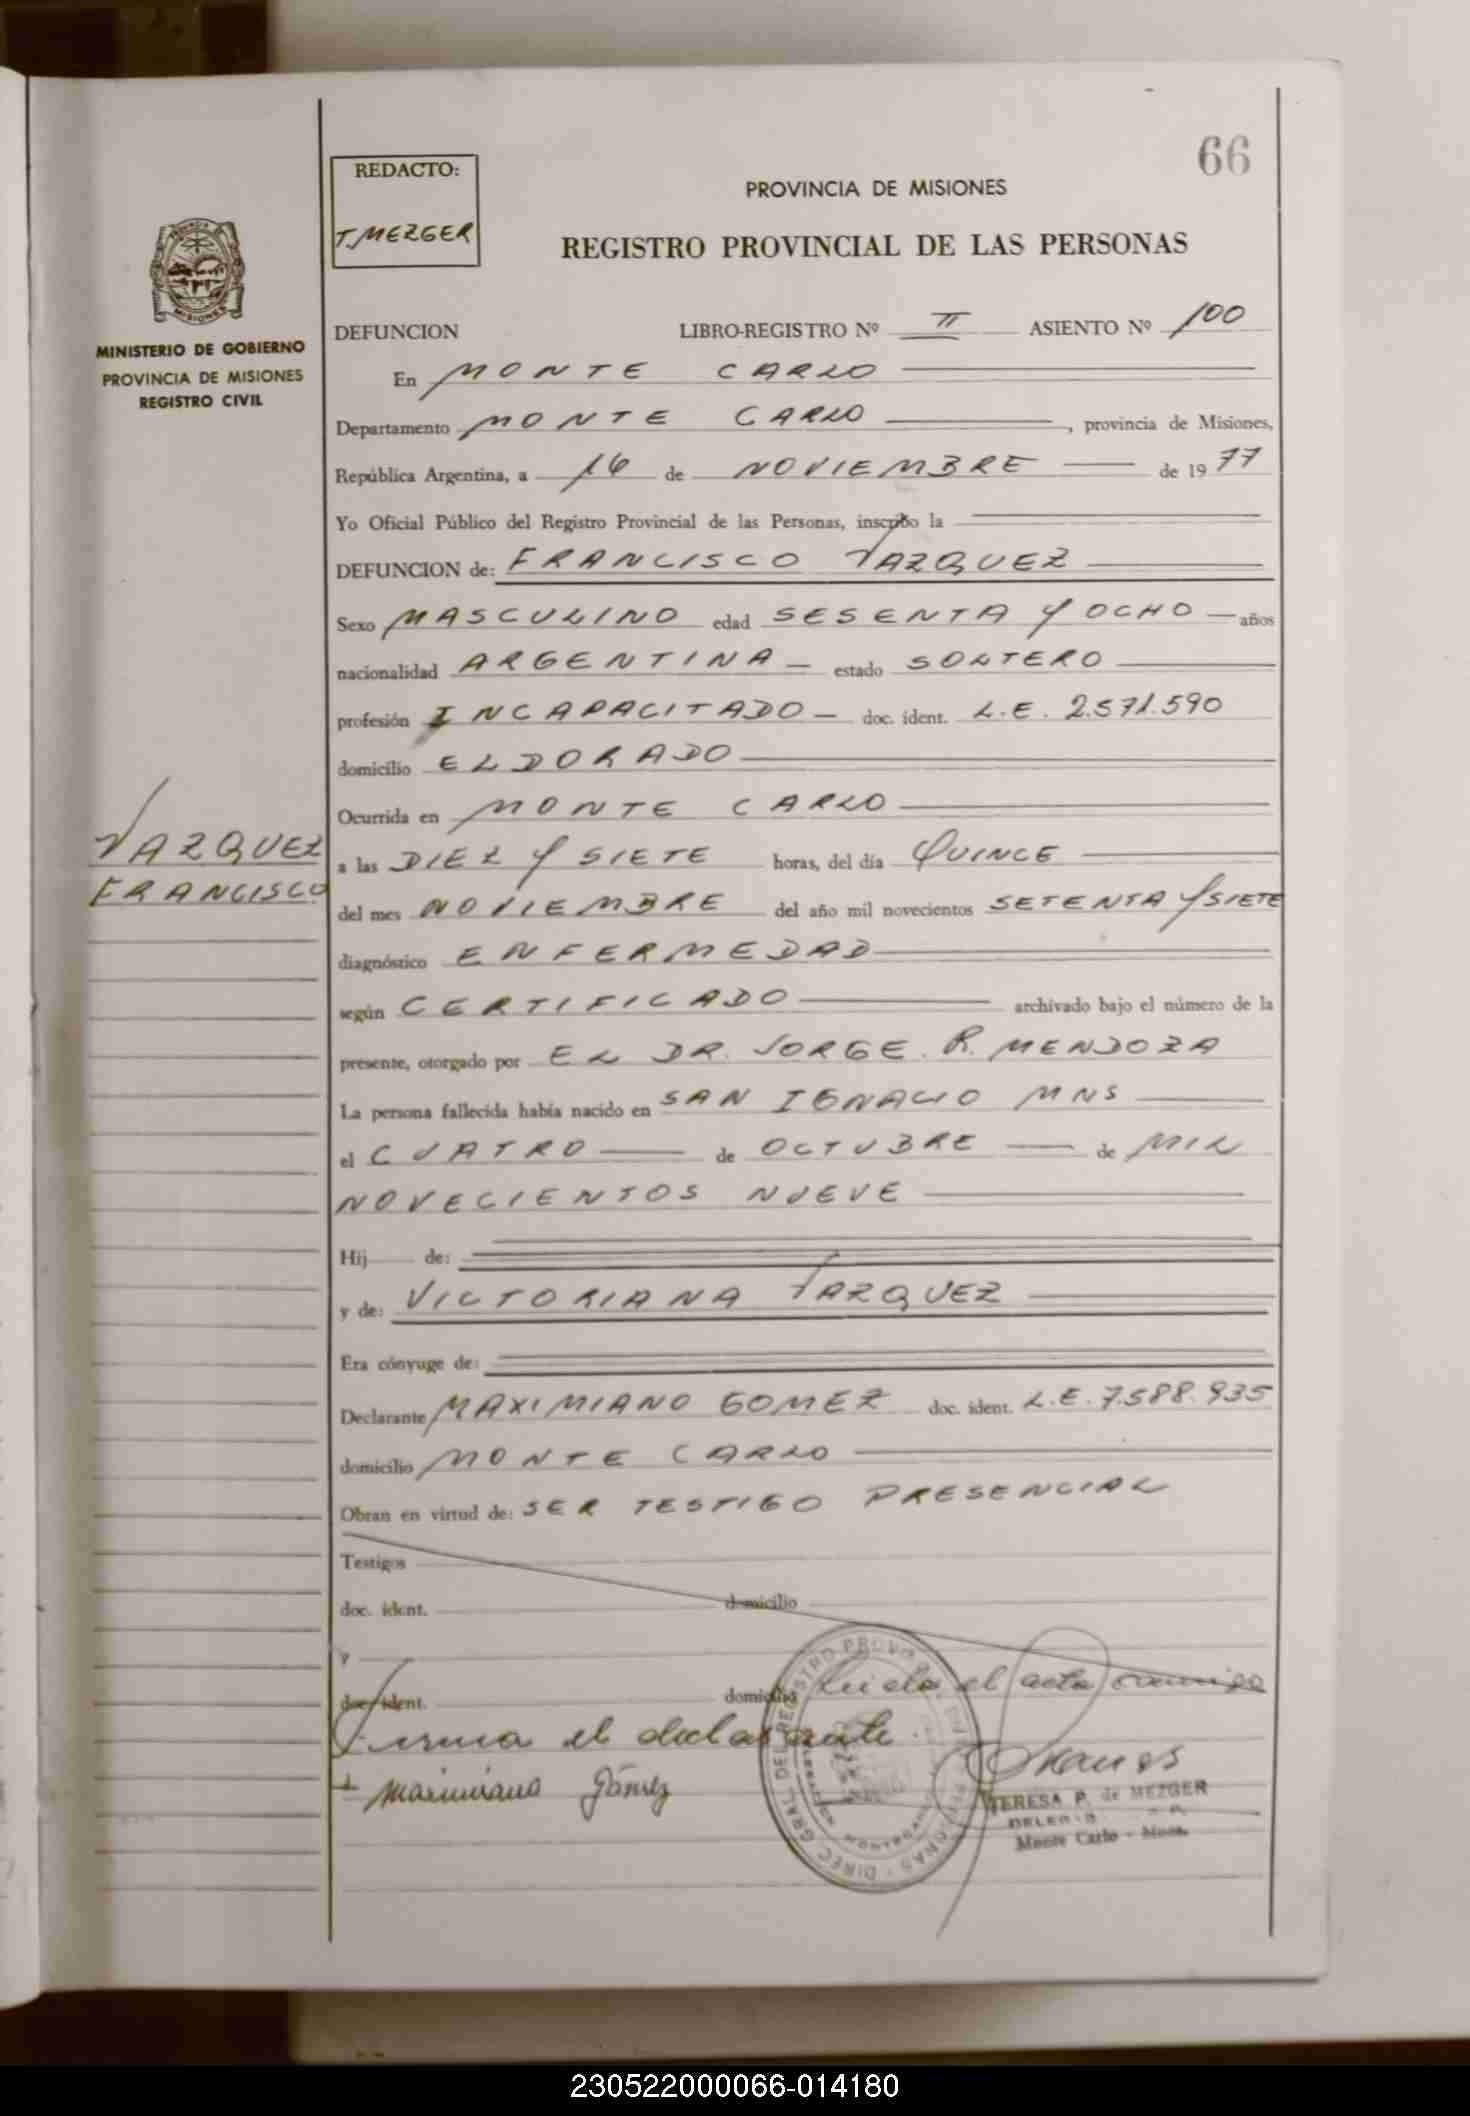 66
REDACTO:
T. MEZGER
PROVINCIA DE MISIONES
REGISTRO PROVINCIAL DE LAS PERSONAS
MISIONES
MINISTERIO DE GOBIERNO
PROVINCIA DE MISIONES
REGISTRO CIVIL
DEFUNCION LIBRO-REGISTRO Nº II ASIENTO Nº 100
En MONTE CARLO
Departamento MONTE CARLO, provincia de Misiones,
República Argentina, a 16 de NOVIEMBRE de 1977
Yo Oficial Público del Registro Provincial de las Personas, inscribo la
DEFUNCION de: FRANCISCO VAZQUEZ
Sexo MASCULINO edad SESENTA Y OCHO años
nacionalidad ARGENTINA estado SOLTERO
profesión INCAPACITADO doc. ident. L.E. 2.571.590
domicilio ELDORADO
Ocurrida en MONTE CARLO
VAZQUEZ
FRANCISCO
a las DIEZ Y SIETE horas, del día QUINCE
del mes NOVIEMBRE del año mil novecientos SETENTA Y SIETE
diagnóstico ENFERMEDAD
según CERTIFICADO archivado bajo el número de la
presente, otorgado por EL DR. JORGE. R. MENDOZA
La persona fallecida había nacido en SAN IGNACIO MNS
el CUATRO de OCTUBRE de MIL
NOVECIENTOS NUEVE
Hij de:
y de: VICTORIANA VAZQUEZ
Era cónyuge de:
Declarante MAXIMIANO GOMEZ doc. ident. L.E. 7.588.935
domicilio MONTE CARLO
Obran en virtud de: SER TESTIGO PRESENCIAL
Testigos
doc. ident. domicilio
y
doc. ident. domicilio Leida el acta conmigo
Firma el declarante.
Maximiano Gómez
TERESA P. de MEZGER
Monte Carlo - Mnes.
DIREC. GRAL. DEL REGISTRO PROV. DE LAS PERSONAS
230522000066-014180